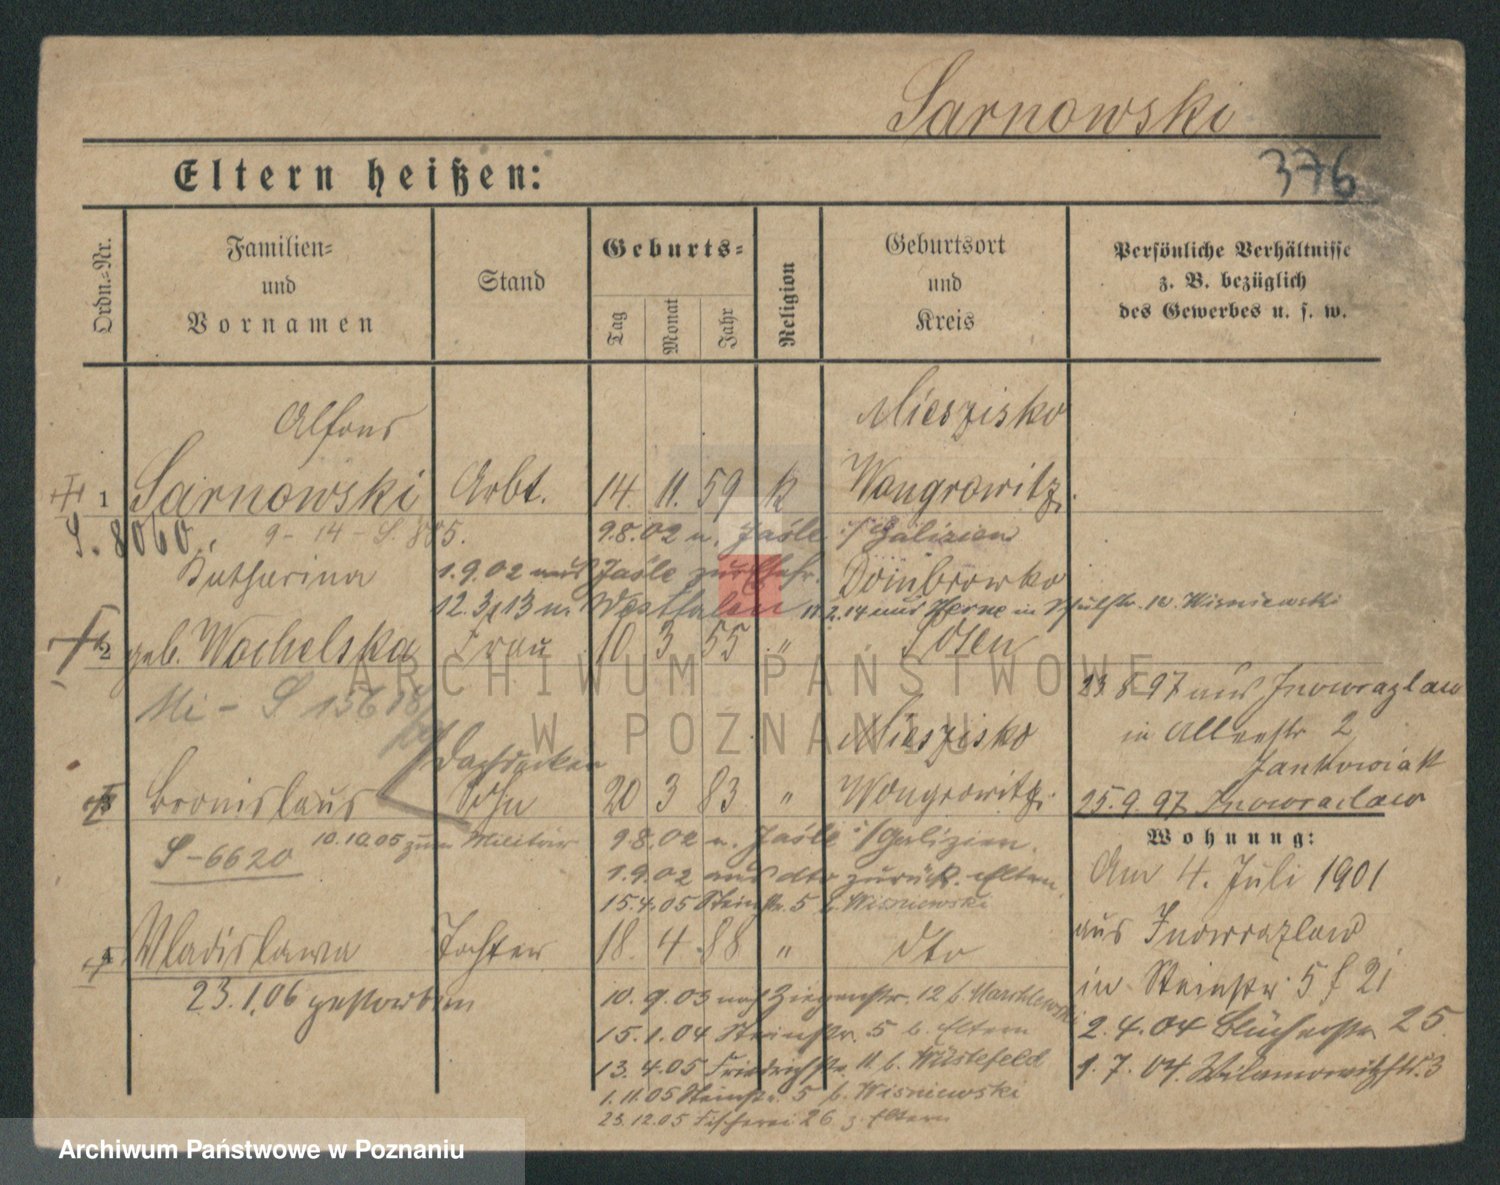 Sarnowski
Eltern heißen:
376
Ordn.-Nr.
Familien-
und
Vornamen
Stand
Geburts-
Tag
Monat
Jahr
Religion
Geburtsort
und
Kreis
Persönliche Verhältnisse
z. B. bezüglich
des Gewerbes u. s. w.
Alfons
Mieszisko
1 Sarnowski Arbt. 14. 11. 59 k Wongrowitz.
S. 8060. 9-14-S. 805. 9.8.02 n. Jaśle i/Galizien
Katharina 1.9.02 aus Jaśle zur Dombrowko
12.3.13 n. Westfalen 11.2.14 aus Herne in b. Wisniewski
2 geb. Wochelska Frau 10 3 55 " Posen
Mi - S 15618
23.8.97 aus Inowrazlaw
in Allerstr 2
Jankowiak
25.9.97 Inowraclaw
Dachdecker
Mieszisko
3 Bronislaus Sohn 20 3 83 " Wongrowitz.
S-6620 10.10.05 zum Militär 9.8.02 n. Jaśle i/Galizien.
1.9.02 aus dto zurück. Eltern.
15.4.05 Steinstr. 5 b. Wisniewski
4 Wladislawa Tochter 18. 4. 88 " dto
23.1.06 gestorben
10.9.03 nach Ziegenstr. 12 b. Marchlewski
15.1.04 Steinstr. 5 b. Eltern
13.4.05 Friedrichstr. 11 b. Wüstefeld
1.11.05 Steinstr. 5 b. Wisniewski
23.12.05 Fischerei 26 z. Eltern
Wohnung:
Am 4. Juli 1901
aus Inowrazlaw
in Steinstr. 5 f 2i
2.4.04 Blücherstr 25
1.7.04. Wilamowitzstr. 3
ARCHIWUM PAŃSTWOWE
W POZNANIU
Archiwum Państwowe w Poznaniu